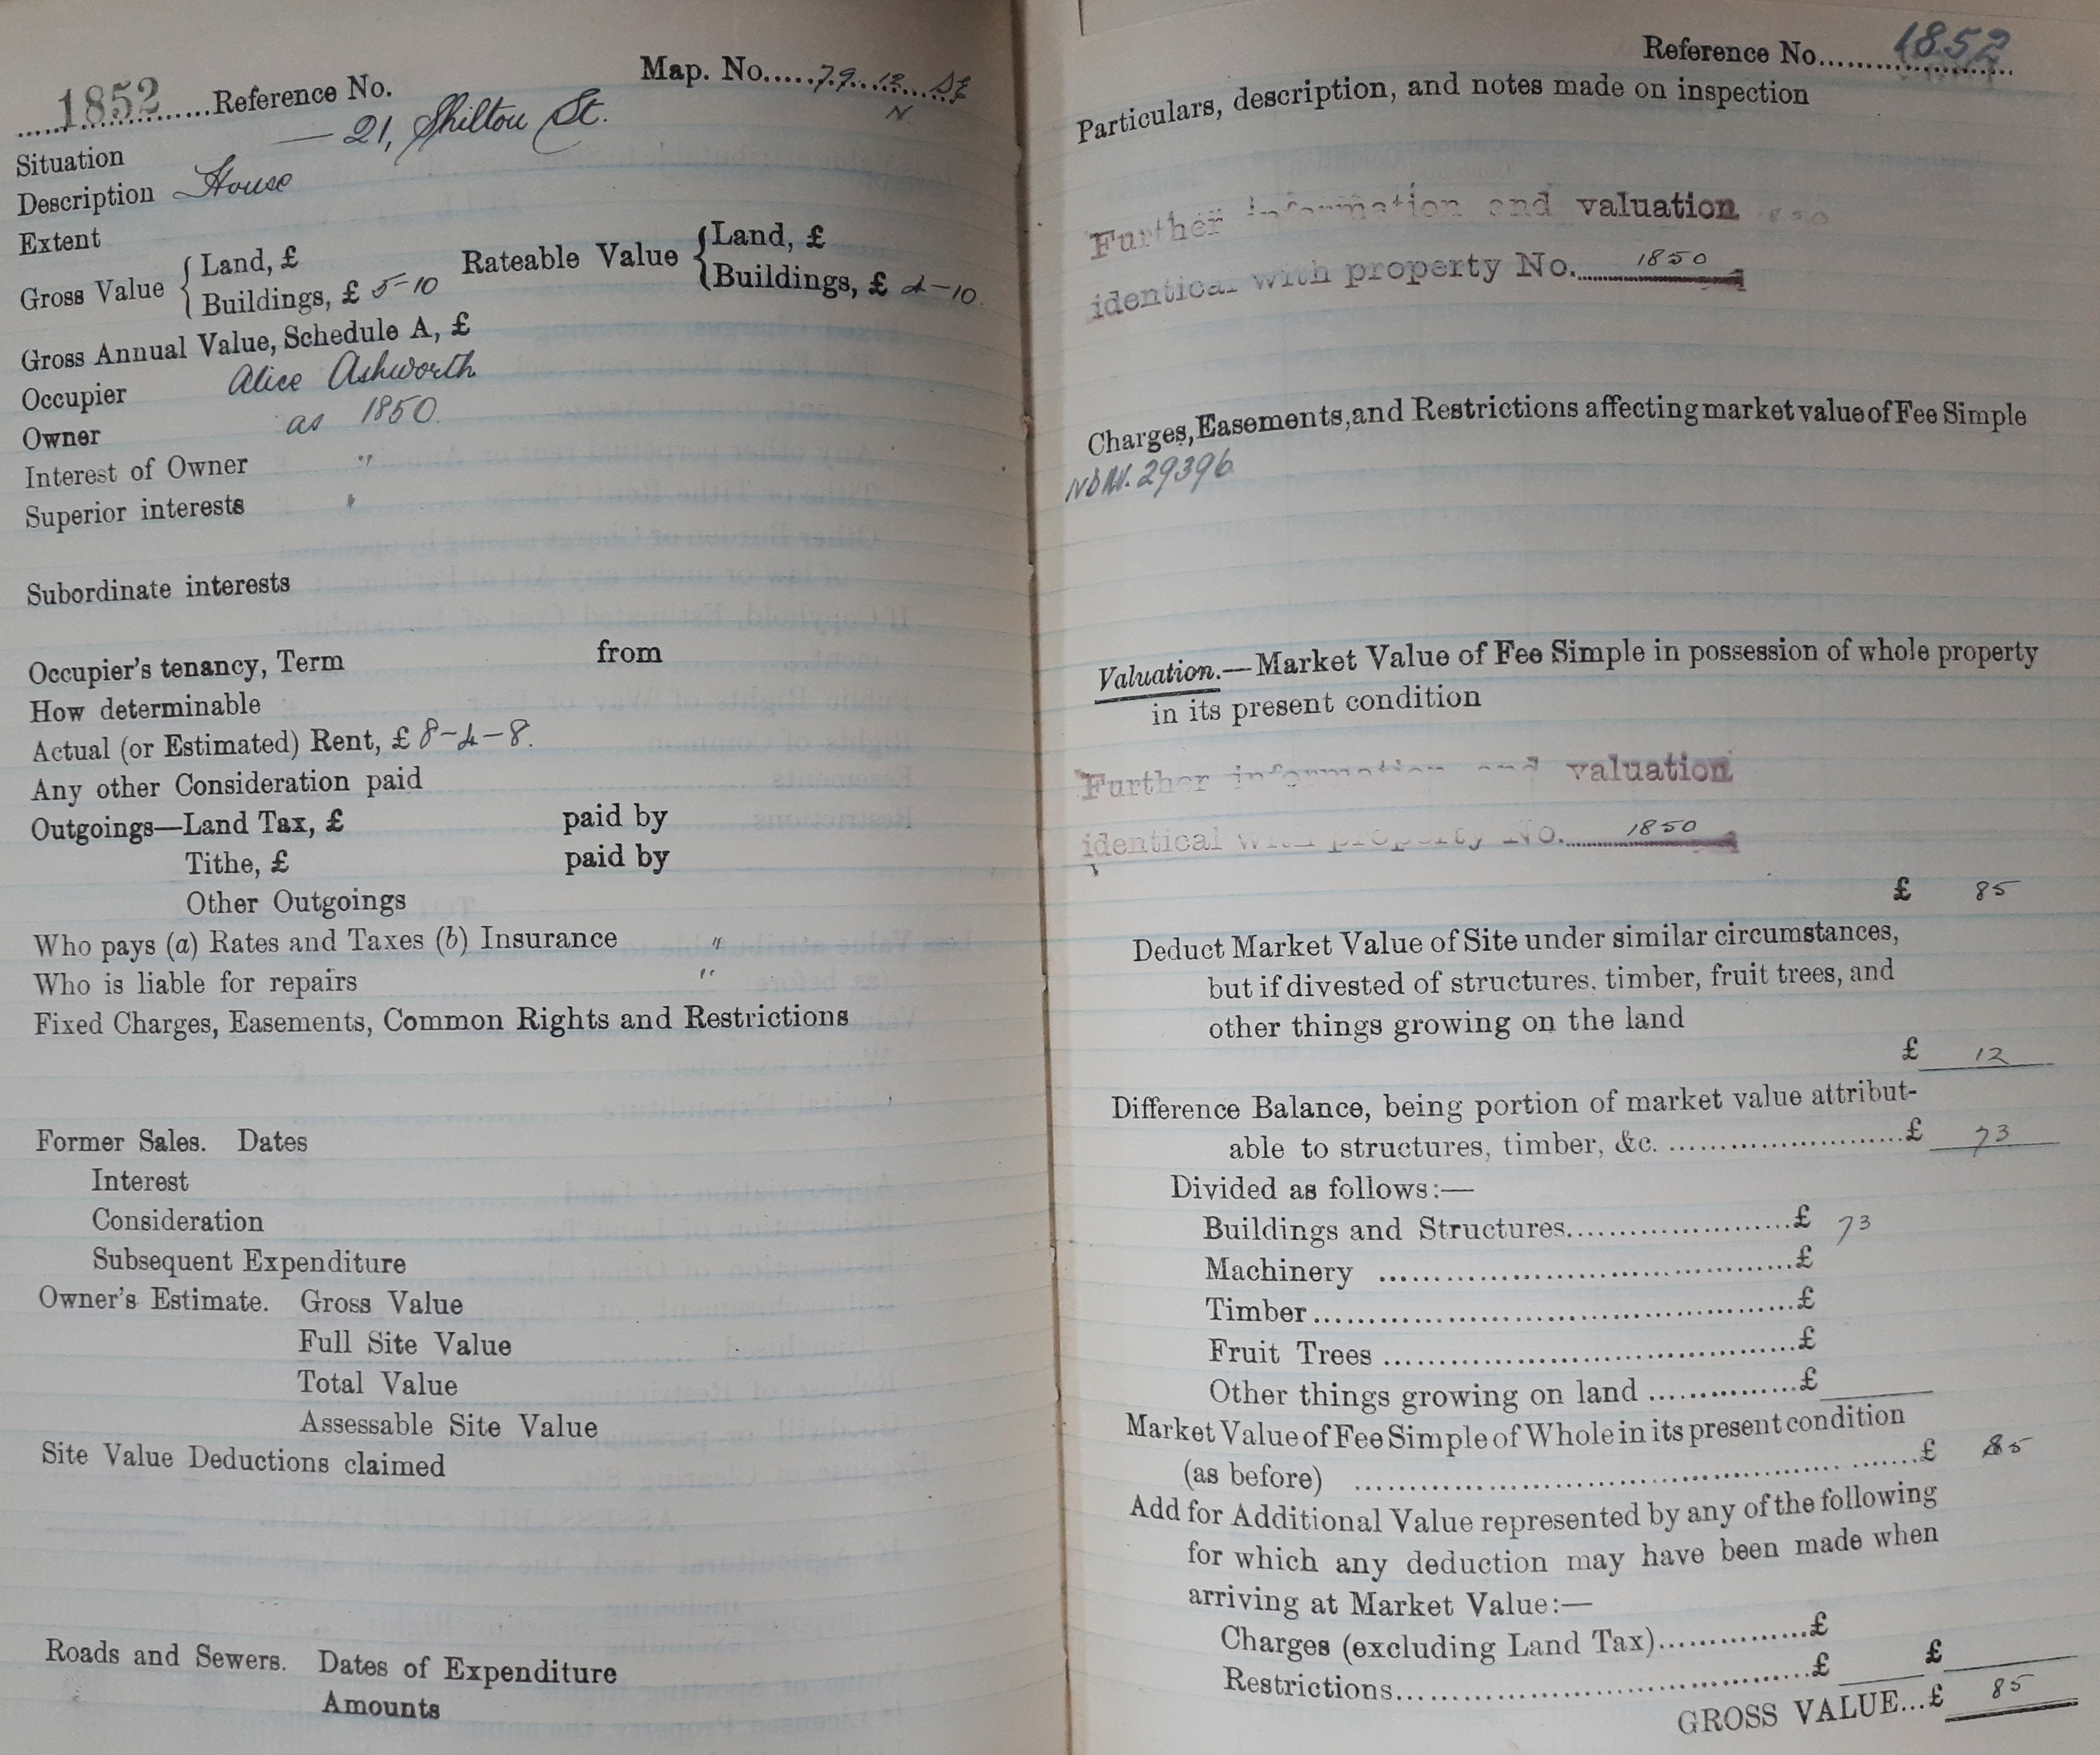 1852 Reference No. Map. No. 79. 12. SE
N
Situation — 21, Shilton St.
Description House
Extent
Gross Value { Land, £ Rateable Value { Land, £
Buildings, £ 5-10 Buildings, £ 4-10.
Gross Annual Value, Schedule A, £
Occupier Alice Ashworth
Owner as 1850.
Interest of Owner "
Superior interests "
Subordinate interests
Occupier's tenancy, Term from
How determinable
Actual (or Estimated) Rent, £ 8-4-8.
Any other Consideration paid
Outgoings—Land Tax, £ paid by
Tithe, £ paid by
Other Outgoings
Who pays (a) Rates and Taxes (b) Insurance "
Who is liable for repairs "
Fixed Charges, Easements, Common Rights and Restrictions
Former Sales. Dates
Interest
Consideration
Subsequent Expenditure
Owner's Estimate. Gross Value
Full Site Value
Total Value
Assessable Site Value
Site Value Deductions claimed
Roads and Sewers. Dates of Expenditure
Amounts
Reference No. 1852
Particulars, description, and notes made on inspection
Further information and valuation
identical with property No. 1850
Charges, Easements, and Restrictions affecting market value of Fee Simple
29396
Valuation.—Market Value of Fee Simple in possession of whole property
in its present condition
Further information and valuation
identical with property No. 1850
£ 85
Deduct Market Value of Site under similar circumstances,
but if divested of structures, timber, fruit trees, and
other things growing on the land
£ 12
Difference Balance, being portion of market value attribut-
able to structures, timber, &c. £ 73
Divided as follows:—
Buildings and Structures £ 73
Machinery £
Timber £
Fruit Trees £
Other things growing on land £
Market Value of Fee Simple of Whole in its present condition
(as before) £ 85
Add for Additional Value represented by any of the following
for which any deduction may have been made when
arriving at Market Value:—
Charges (excluding Land Tax) £
Restrictions £ £
GROSS VALUE...£ 85